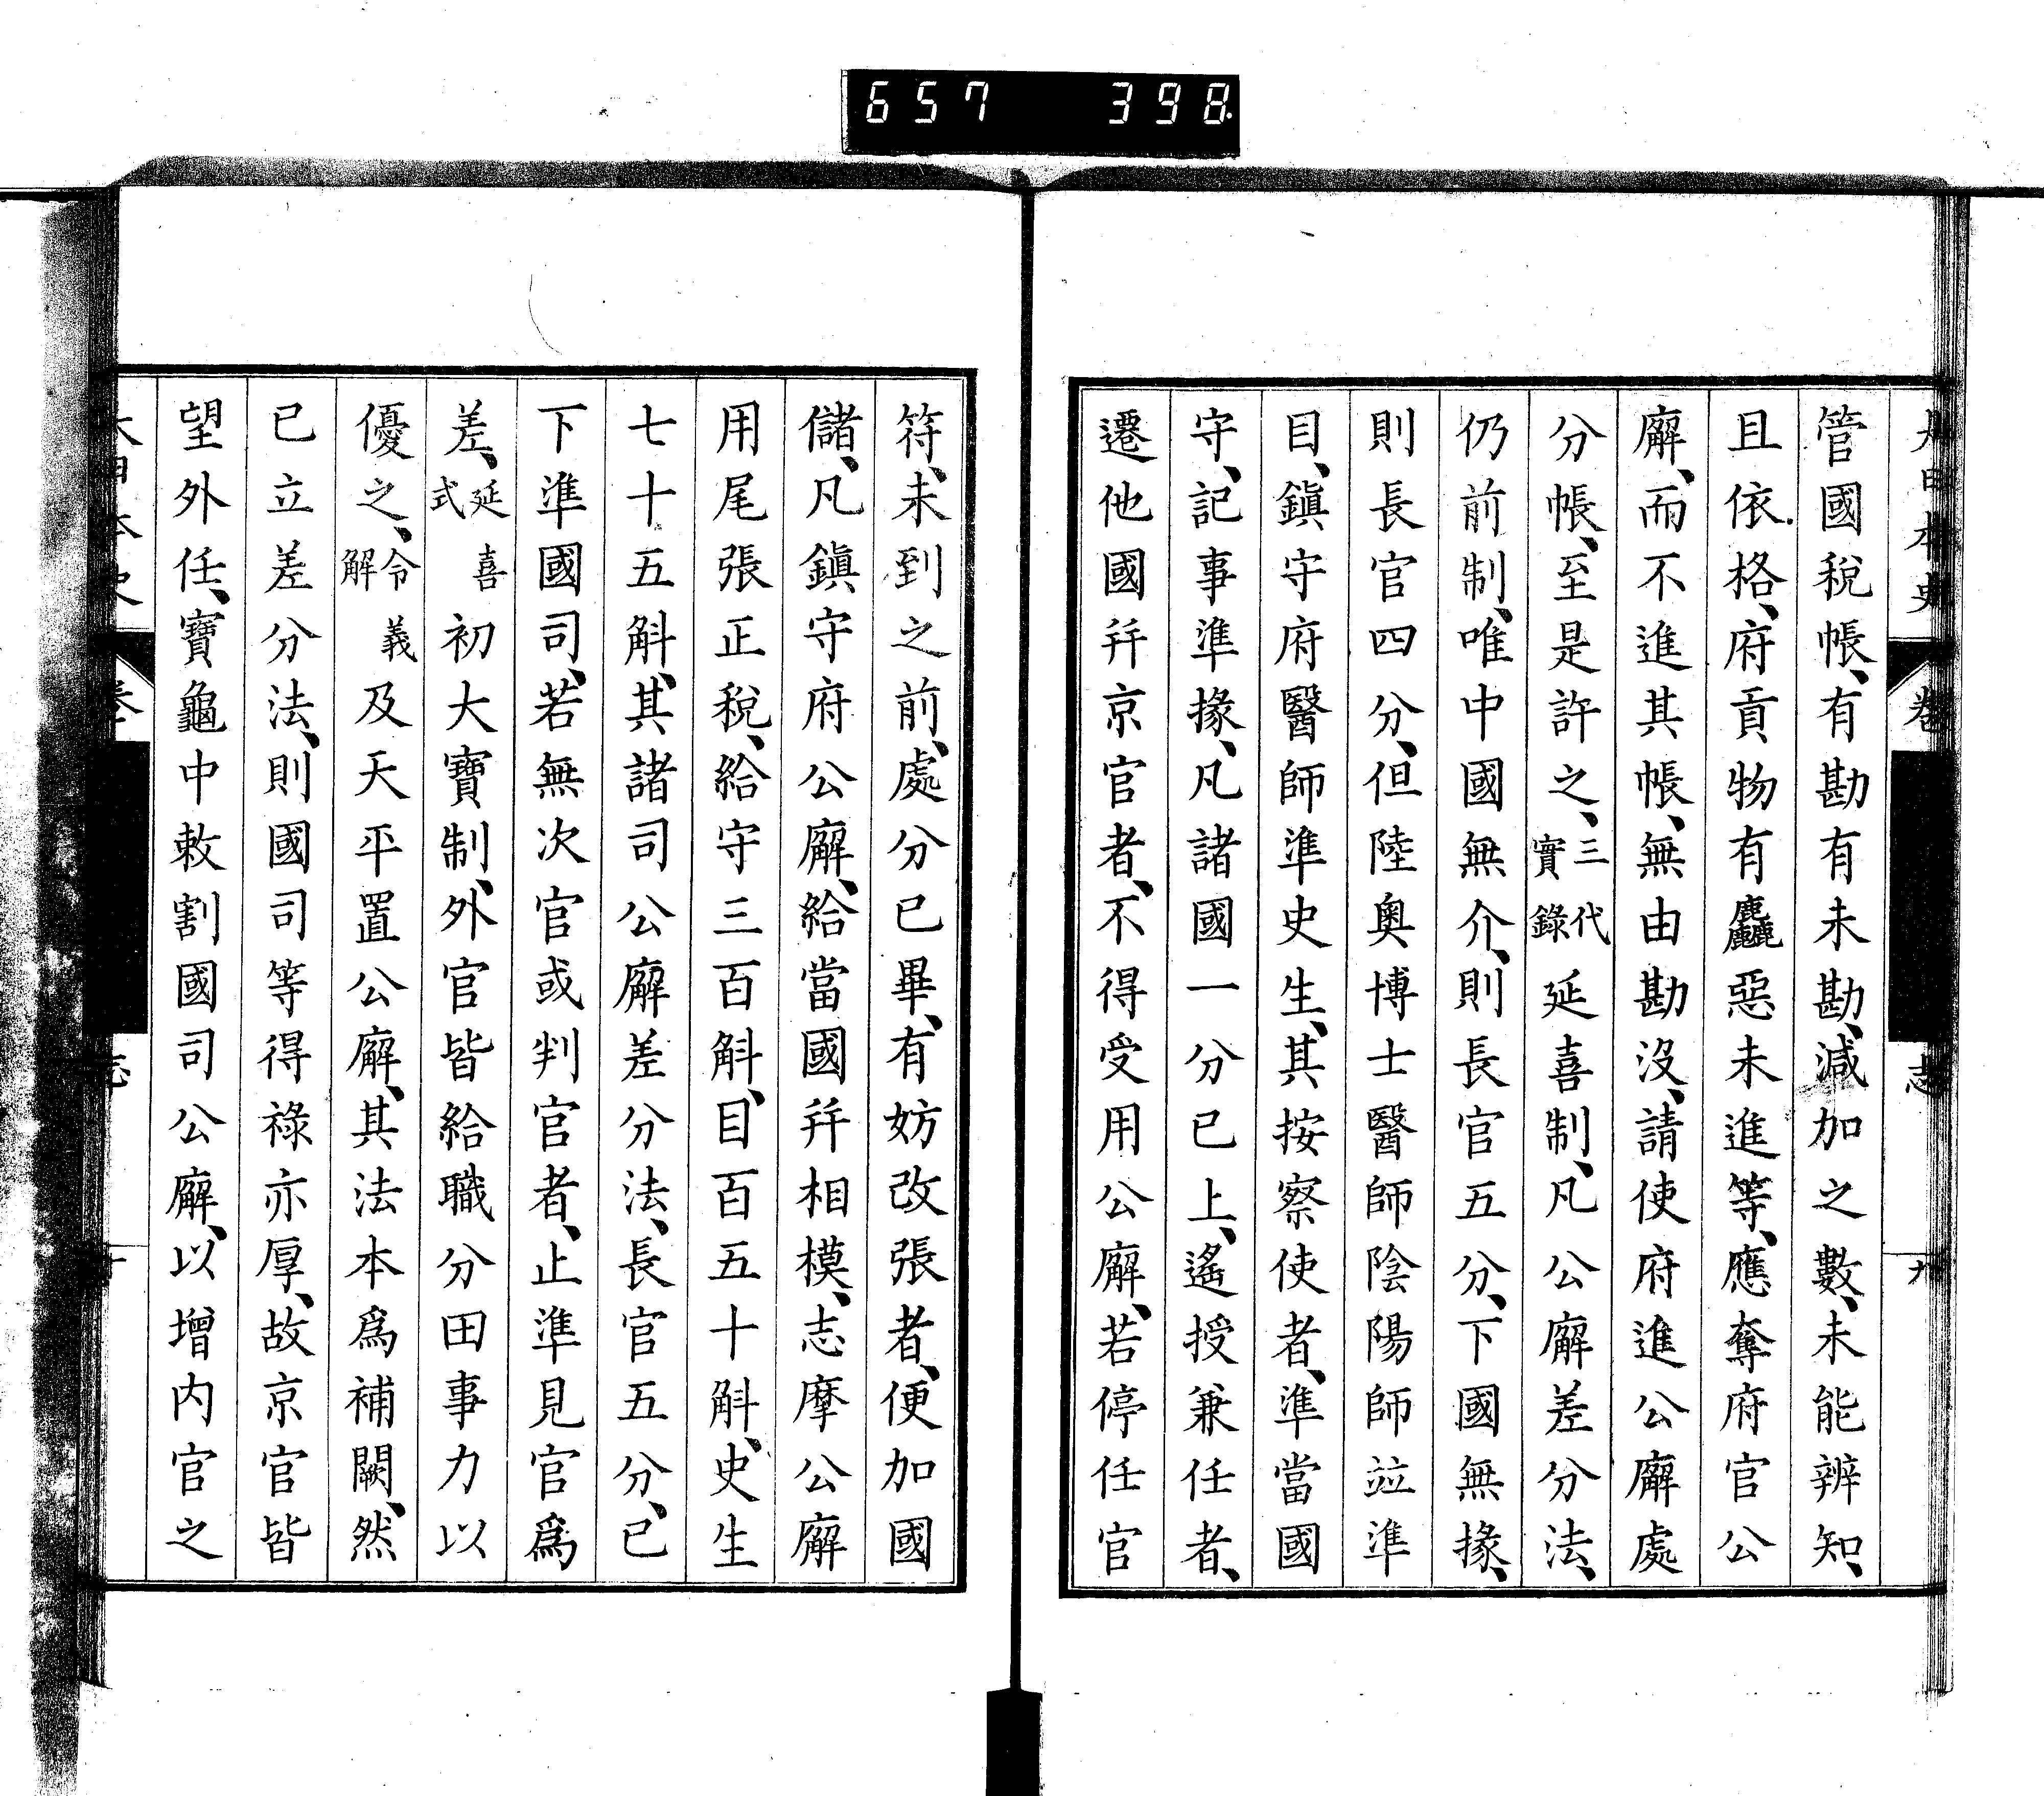 657 398
管國稅帳、有勘有未勘、減加之數、未能辨知、
且依格、府貢物有麤惡未進等、應奪府官公
廨、而不進其帳、無由勘沒、請使府進公廨處
分帳、至是許之、三代實錄延喜制、凡公廨差分法、
仍前制、唯中國無介、則長官五分、下國無掾、
則長官四分、但陸奧博士醫師陰陽師竝準
目、鎭守府醫師準史生、其按察使者、準當國
守、記事準掾、凡諸國一分已上、遙授兼任者、
遷他國幷京官者、不得受用公廨、若停任官
符、未到之前、處分已畢、有妨改張者、便加國
儲、凡鎭守府公廨、給當國幷相模、志摩公廨
用尾張正稅、給守三百斛、目百五十斛、史生
七十五斛、其諸司公廨差分法、長官五分、已
下準國司、若無次官或判官者、止準見官爲
差、延喜式初大寶制、外官皆給職分田事力以
優之、令義解及天平置公廨、其法本爲補闕、然
已立差分法、則國司等得祿亦厚、故京官皆
望外任、寶龜中敕割國司公廨、以增內官之